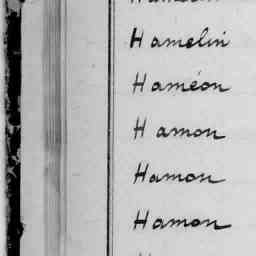 Hamelin
Haméon
Hamon
Hamon
Hamon